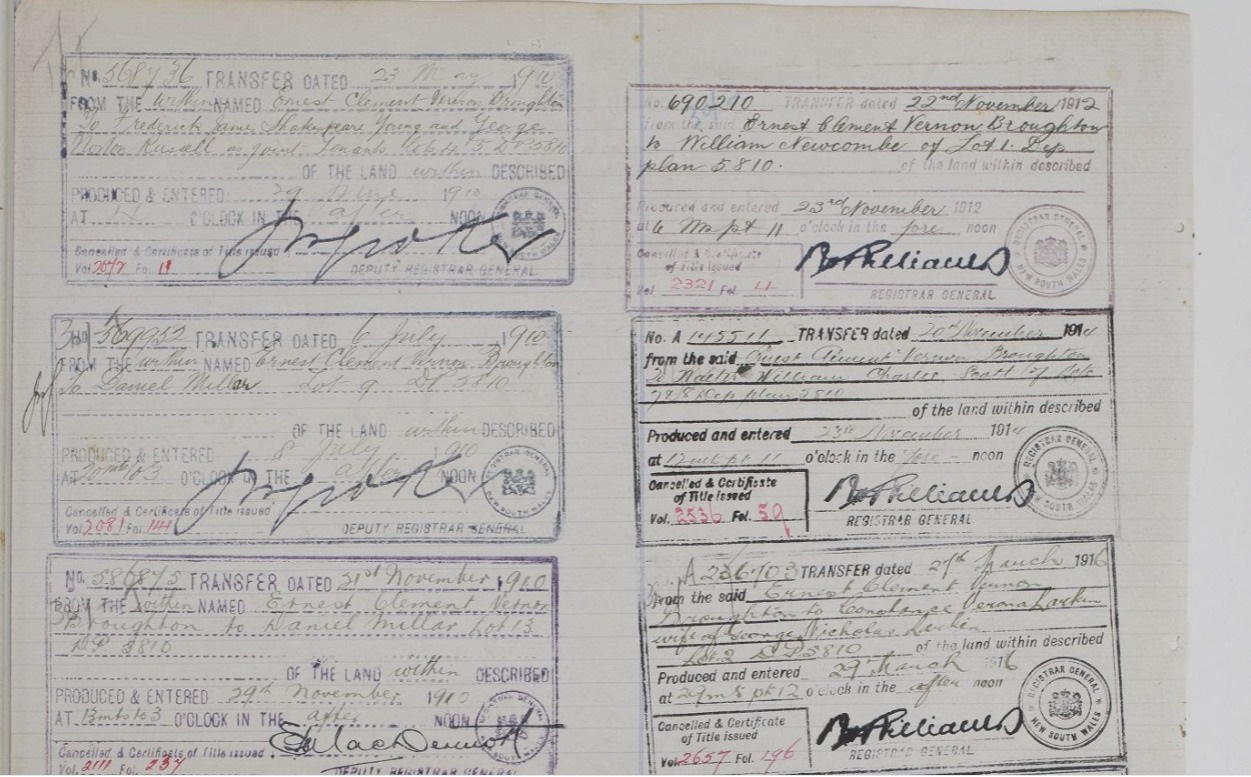 No. 568736 TRANSFER DATED 23 May 1910
FROM THE within NAMED Ernest Clement Vernon Broughton
To Frederick James Shakespeare Young and George
Russell as joint Tenants Lots 4 & 5 DP 5810
OF THE LAND within DESCRIBED
PRODUCED & ENTERED 29 June 1910
AT O'CLOCK IN THE after NOON
Cancelled & Certificate of Title issued
Vol. Fol.
DEPUTY REGISTRAR GENERAL
No. 569952 TRANSFER DATED 6 July 1910
FROM THE within NAMED Ernest Clement Vernon Broughton
To Daniel Millar Lot 9 DP 5810
OF THE LAND within DESCRIBED
PRODUCED & ENTERED 8 July 1910
AT 20 m to 3 O'CLOCK IN THE after NOON
Cancelled & Certificate of Title issued
Vol. 2081 Fol. 144
DEPUTY REGISTRAR GENERAL
No. 586875 TRANSFER DATED 21st November 1910
FROM THE within NAMED Ernest Clement Vernon
Broughton to Daniel Millar Lot 13
DP 5810
OF THE LAND within DESCRIBED
PRODUCED & ENTERED 29th November 1910
AT 13 m to 3 O'CLOCK IN THE after NOON
Cancelled & Certificate of Title issued
Vol. 2111 Fol. 237
DEPUTY REGISTRAR GENERAL
No. 690210 TRANSFER dated 22nd November 1912
from the said Ernest Clement Vernon Broughton
to William Newcombe of Lot 1 Dep
plan 5810.
of the land within described
Produced and entered 23rd November 1912
at 6 ms pt 11 o'clock in the fore noon
Cancelled & Certificate
of Title issued
Vol 2321 Fol. 4
REGISTRAR GENERAL
REGISTRAR GENERAL
NEW SOUTH WALES
No. A 145511 TRANSFER dated 20th November 1914
from the said Ernest Clement Vernon Broughton
to Walter William Charles Scott of Lots
7 & 8 Dep plan 5810
of the land within described
Produced and entered 23rd November 1914
at 12 m pt 11 o'clock in the fore - noon
Cancelled & Certificate
of Title issued
Vol. 2536 Fol. 59
REGISTRAR GENERAL
REGISTRAR GENERAL
NEW SOUTH WALES
No. A 236703 TRANSFER dated 27th March 1916
from the said Ernest Clement Vernon
Broughton to Constance Verona Larkin
wife of George Nicholas Larkin
Lot 2 DP 5810 of the land within described
Produced and entered 29th March 1916
at 29 m pt 12 o'clock in the after noon
Cancelled & Certificate
of Title issued
Vol. 2657 Fol. 196
REGISTRAR GENERAL
REGISTRAR GENERAL
NEW SOUTH WALES